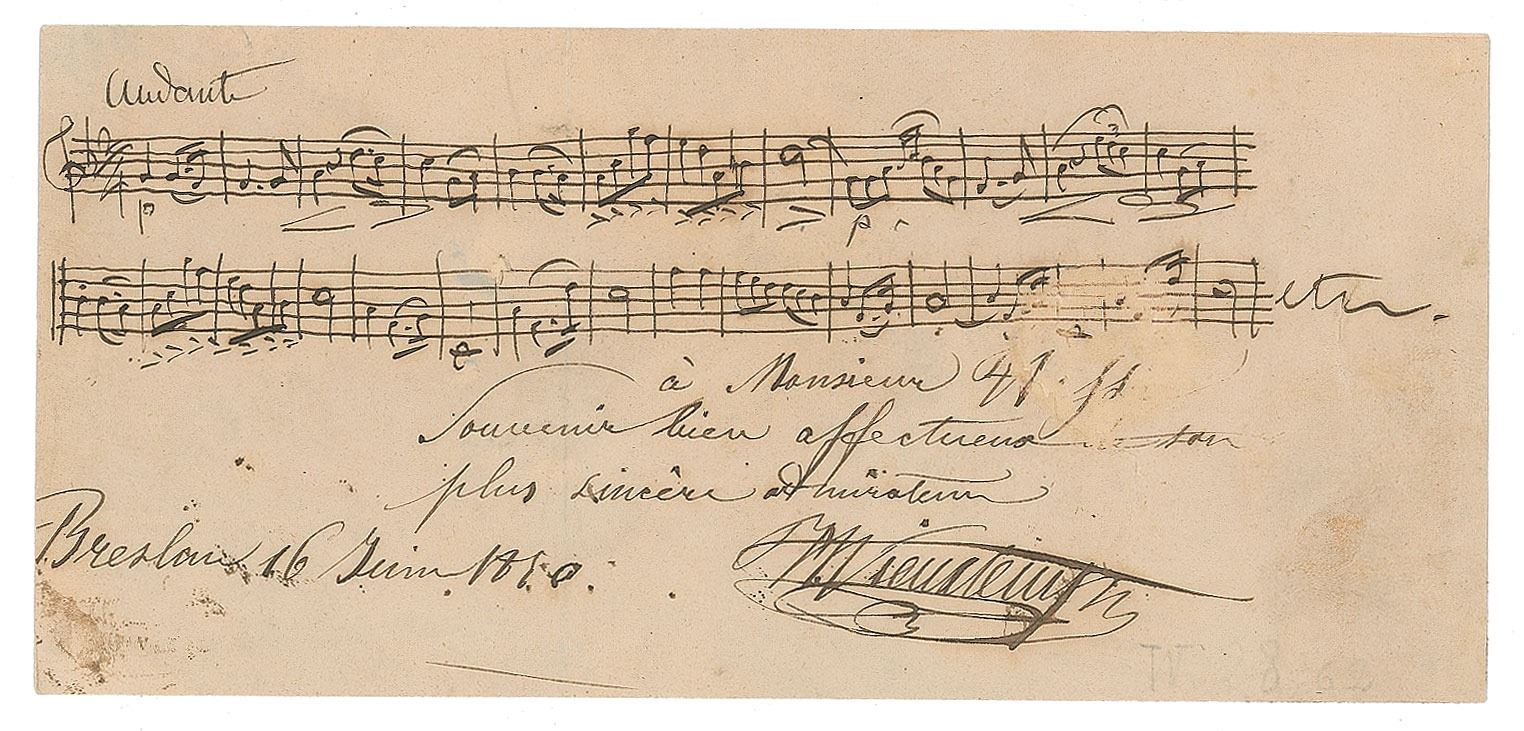 Andante
p
p
etc.
à Monsieur
Souvenir bien affectueux de son
plus sincère admirateur
Breslau 16 Juin 1850.